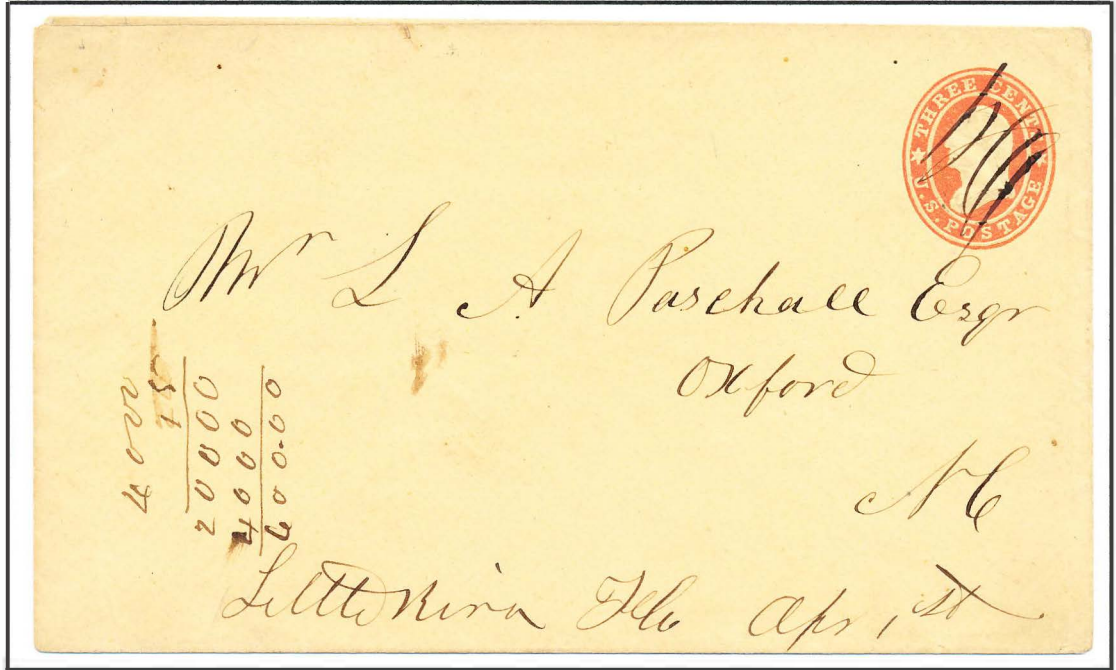 THREE CENTS
U.S. POSTAGE
Mr L A Paschall Esqr
Oxford
NC
4000
15
20000
4000
600.00
Little River Fla Apr, 1st